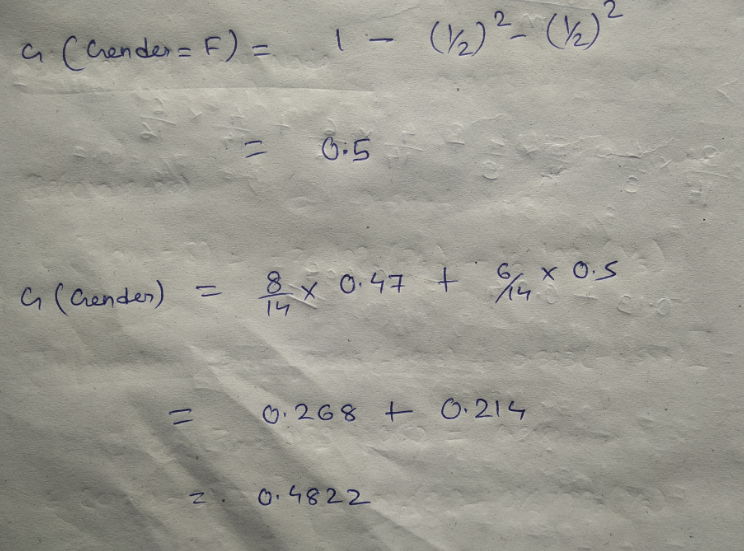 G (Gender = F) = 1 - (1/2)² - (1/2)²
= 0.5
G (Gender) = 8/14 × 0.47 + 6/14 × 0.5
= 0.268 + 0.214
= 0.4822